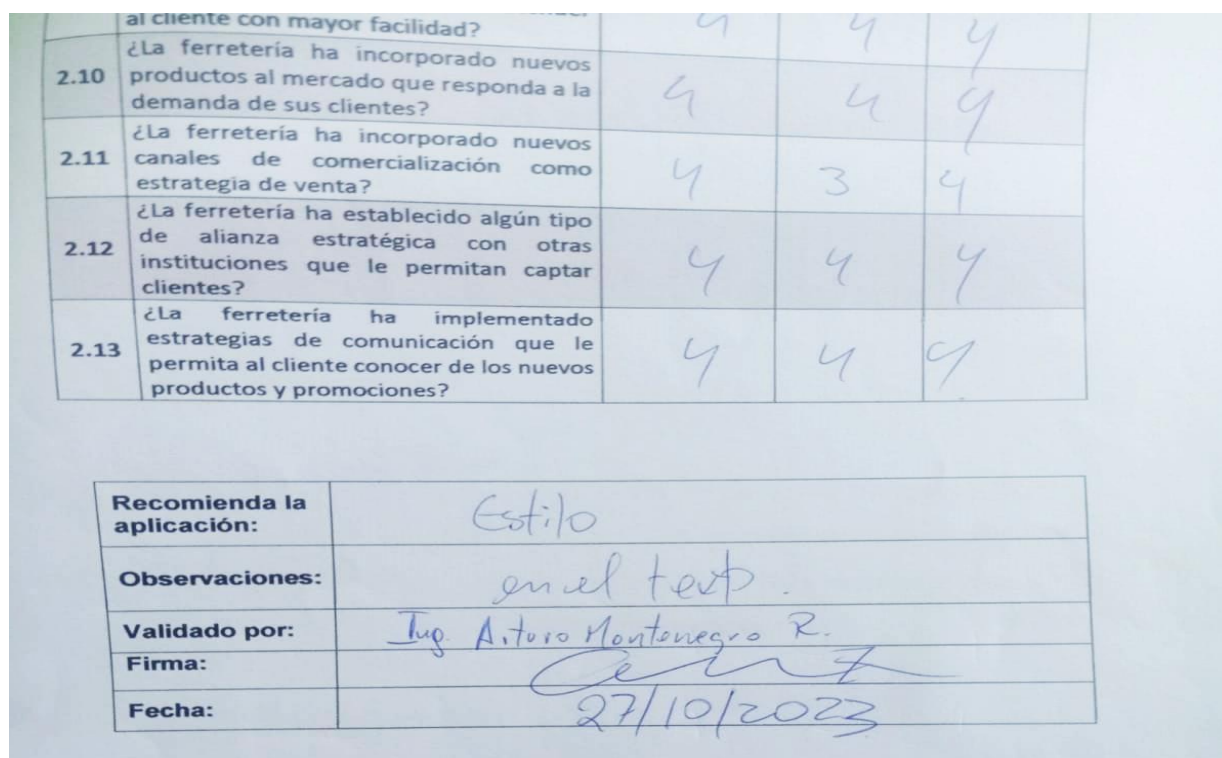 al cliente con mayor facilidad? 4 4 4
¿La ferretería ha incorporado nuevos
2.10 productos al mercado que responda a la
demanda de sus clientes? 4 4 4
¿La ferretería ha incorporado nuevos
2.11 canales de comercialización como
estrategia de venta? 4 3 4
¿La ferretería ha establecido algún tipo
2.12 de alianza estratégica con otras
instituciones que le permitan captar
clientes? 4 4 4
¿La ferretería ha implementado
2.13 estrategias de comunicación que le
permita al cliente conocer de los nuevos
productos y promociones? 4 4 4
Recomienda la
aplicación: Estilo
Observaciones: en el texto.
Validado por: Ing. Arturo Montenegro R.
Firma:
Fecha: 27/10/2023